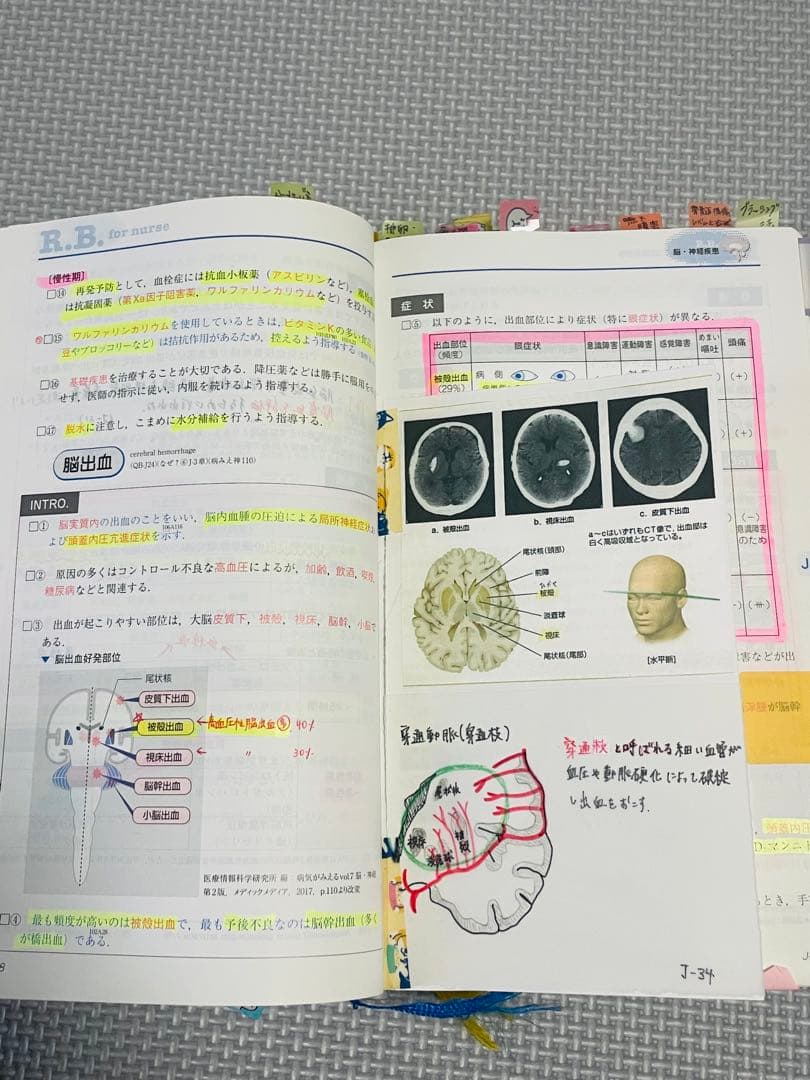 R.B. for nurse
[慢性期]
□⑭ 再発予防として，血栓症には抗血小板薬（アスピリンなど），塞栓
は抗凝固薬（第Xa因子阻害薬，ワルファリンカリウムなど）を投与す
□⑮ ワルファリンカリウムを使用しているときは，ビタミンKの多い食品
豆やブロッコリーなど）は拮抗作用があるため，控えるよう指導する
□⑯ 基礎疾患を治療することが大切である．降圧薬などは勝手に服用を
せず，医師の指示に従い，内服を続けるよう指導する．
□⑰ 脱水に注意し，こまめに水分補給を行うよう指導する．
脳出血
cerebral hemorrhage
(QB J24)(なぜ？⑥J-3章)(病みえ神110)
INTRO.
□① 脳実質内の出血のことをいい，脳内血腫の圧迫による局所神経症状お
106A116
よび頭蓋内圧亢進症状を示す．
□② 原因の多くはコントロール不良な高血圧によるが，加齢，飲酒，喫煙，
糖尿病などと関連する．
□③ 出血が起こりやすい部位は，大脳皮質下，被殻，視床，脳幹，小脳で
ある．
▼ 脳出血好発部位
尾状核
皮質下出血
被殻出血
←高血圧性脳出血 多 40%
視床出血
← 〃 30%
脳幹出血
小脳出血
医療情報科学研究所 編 病気がみえるvol7 脳・神経
第2版．メディックメディア，2017，p.110より改変
□④ 最も頻度が高いのは被殻出血で，最も予後不良なのは脳幹出血（多く
102A28
が橋出血）である．
8
脳・神経疾患
症 状
□⑤ 以下のように，出血部位により症状（特に眼症状）が異なる．
出血部位
(頻度)
眼症状
意識障害
運動障害
感覚障害
めまい
嘔吐
頭痛
被殻出血
(29%)
病 側
(+)
(+)
(-)
意識障害
のため
a. 被殻出血
b. 視床出血
c. 皮質下出血
a～cはいずれもCT像で，出血部は
白く高吸収域となっている．
尾状核(頭部)
前障
ひかく
被殻
淡蒼球
視床
尾状核(尾部)
[水平断]
穿通動脈(穿通枝)
穿通枝 と呼ばれる細い血管が
血圧や動脈硬化によって破綻
し出血をおこす.
尾状核
視床
淡蒼球
被殻
J-34